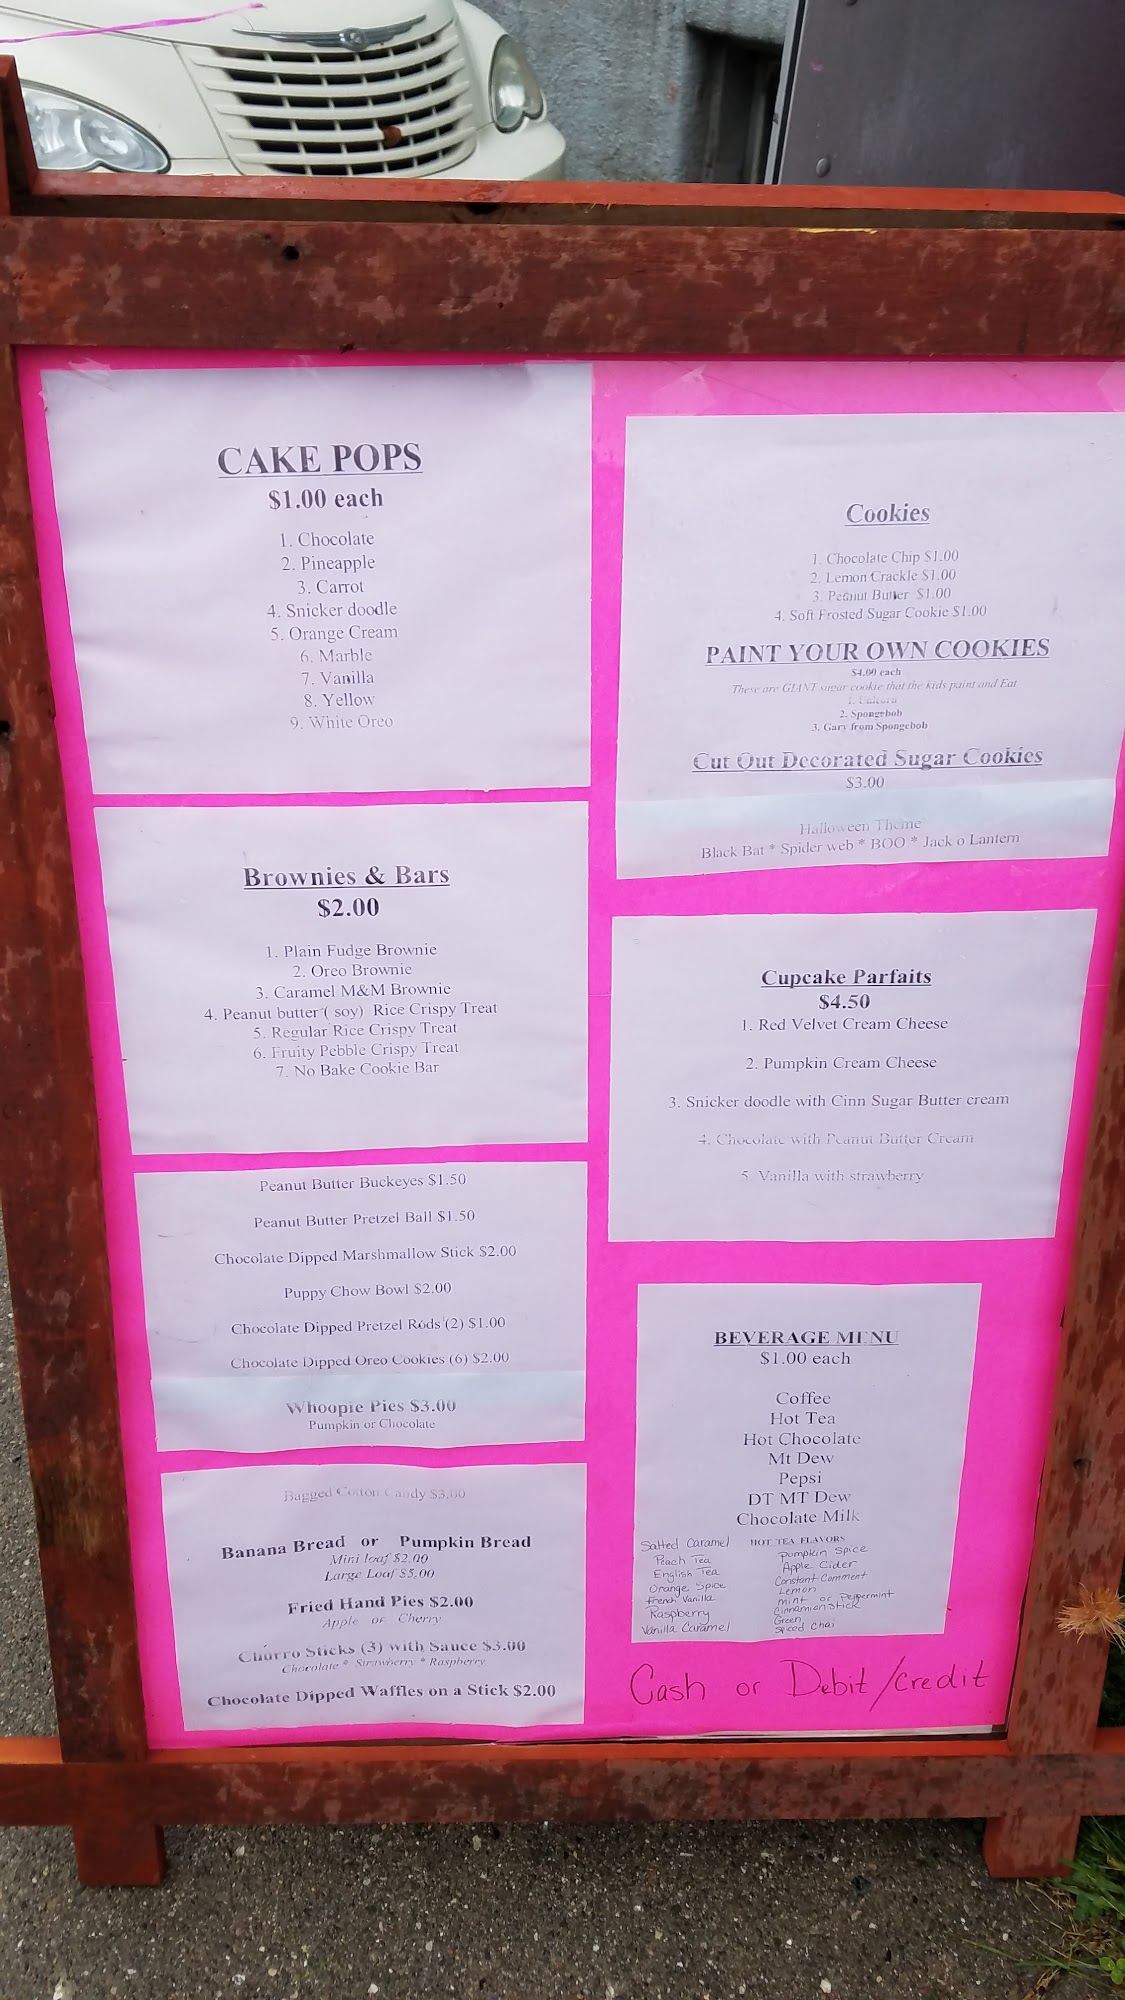 CAKE POPS
$1.00 each
1. Chocolate
2. Pineapple
3. Carrot
4. Snicker doodle
5. Orange Cream
6. Marble
7. Vanilla
8. Yellow
9. White Oreo
Brownies & Bars
$2.00
1. Plain Fudge Brownie
2. Oreo Brownie
3. Caramel M&M Brownie
4. Peanut butter ( soy) Rice Crispy Treat
5. Regular Rice Crispy Treat
6. Fruity Pebble Crispy Treat
7. No Bake Cookie Bar
Peanut Butter Buckeyes $1.50
Peanut Butter Pretzel Ball $1.50
Chocolate Dipped Marshmallow Stick $2.00
Puppy Chow Bowl $2.00
Chocolate Dipped Pretzel Rods (2) $1.00
Chocolate Dipped Oreo Cookies (6) $2.00
Whoopie Pies $3.00
Pumpkin or Chocolate
Bagged Cotton Candy $3.00
Banana Bread or Pumpkin Bread
Mini loaf $2.00
Large Loaf $5.00
Fried Hand Pies $2.00
Apple or Cherry
Churro Sticks (3) with Sauce $3.00
Chocolate * Strawberry * Raspberry
Chocolate Dipped Waffles on a Stick $2.00
Cookies
1. Chocolate Chip $1.00
2. Lemon Crackle $1.00
3. Peanut Butter $1.00
4. Soft Frosted Sugar Cookie $1.00
PAINT YOUR OWN COOKIES
$4.00 each
These are GIANT sugar cookie that the kids paint and Eat
1. Unicorn
2. Spongebob
3. Gary from Spongebob
Cut Out Decorated Sugar Cookies
$3.00
Halloween Theme
Black Bat * Spider web * BOO * Jack o Lantern
Cupcake Parfaits
$4.50
1. Red Velvet Cream Cheese
2. Pumpkin Cream Cheese
3. Snicker doodle with Cinn Sugar Butter cream
4. Chocolate with Peanut Butter Cream
5. Vanilla with strawberry
BEVERAGE MENU
$1.00 each
Coffee
Hot Tea
Hot Chocolate
Mt Dew
Pepsi
DT MT Dew
Chocolate Milk
HOT TEA FLAVORS
Salted Caramel
Peach Tea
English Tea
Orange Spice
French Vanilla
Raspberry
Vanilla Caramel
pumpkin spice
Apple Cider
Constant Comment
Lemon
mint or Peppermint
Cinnamian stick
Green
Spiced Chai
Cash or Debit/credit